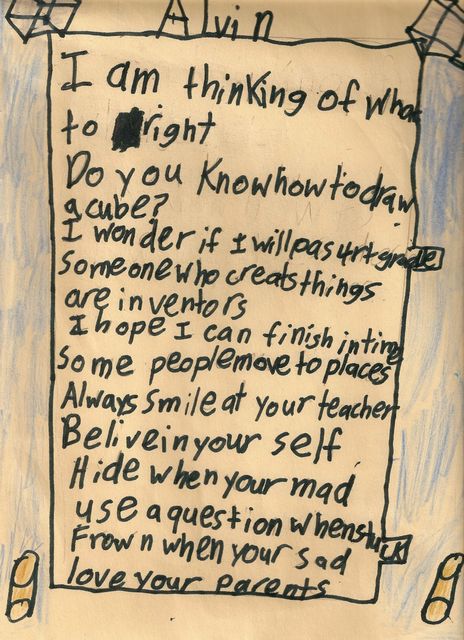 Alvin
I am thinking of what
to right
Do you Know how to draw
a cube?
I wonder if I will pas 4rt grade
someone who creats things
are inventors
I hope I can finish in time
some people move to places
Always smile at your teacher
Belive in your self
Hide when your mad
use a question when stuck
Frown when your sad
love your parents